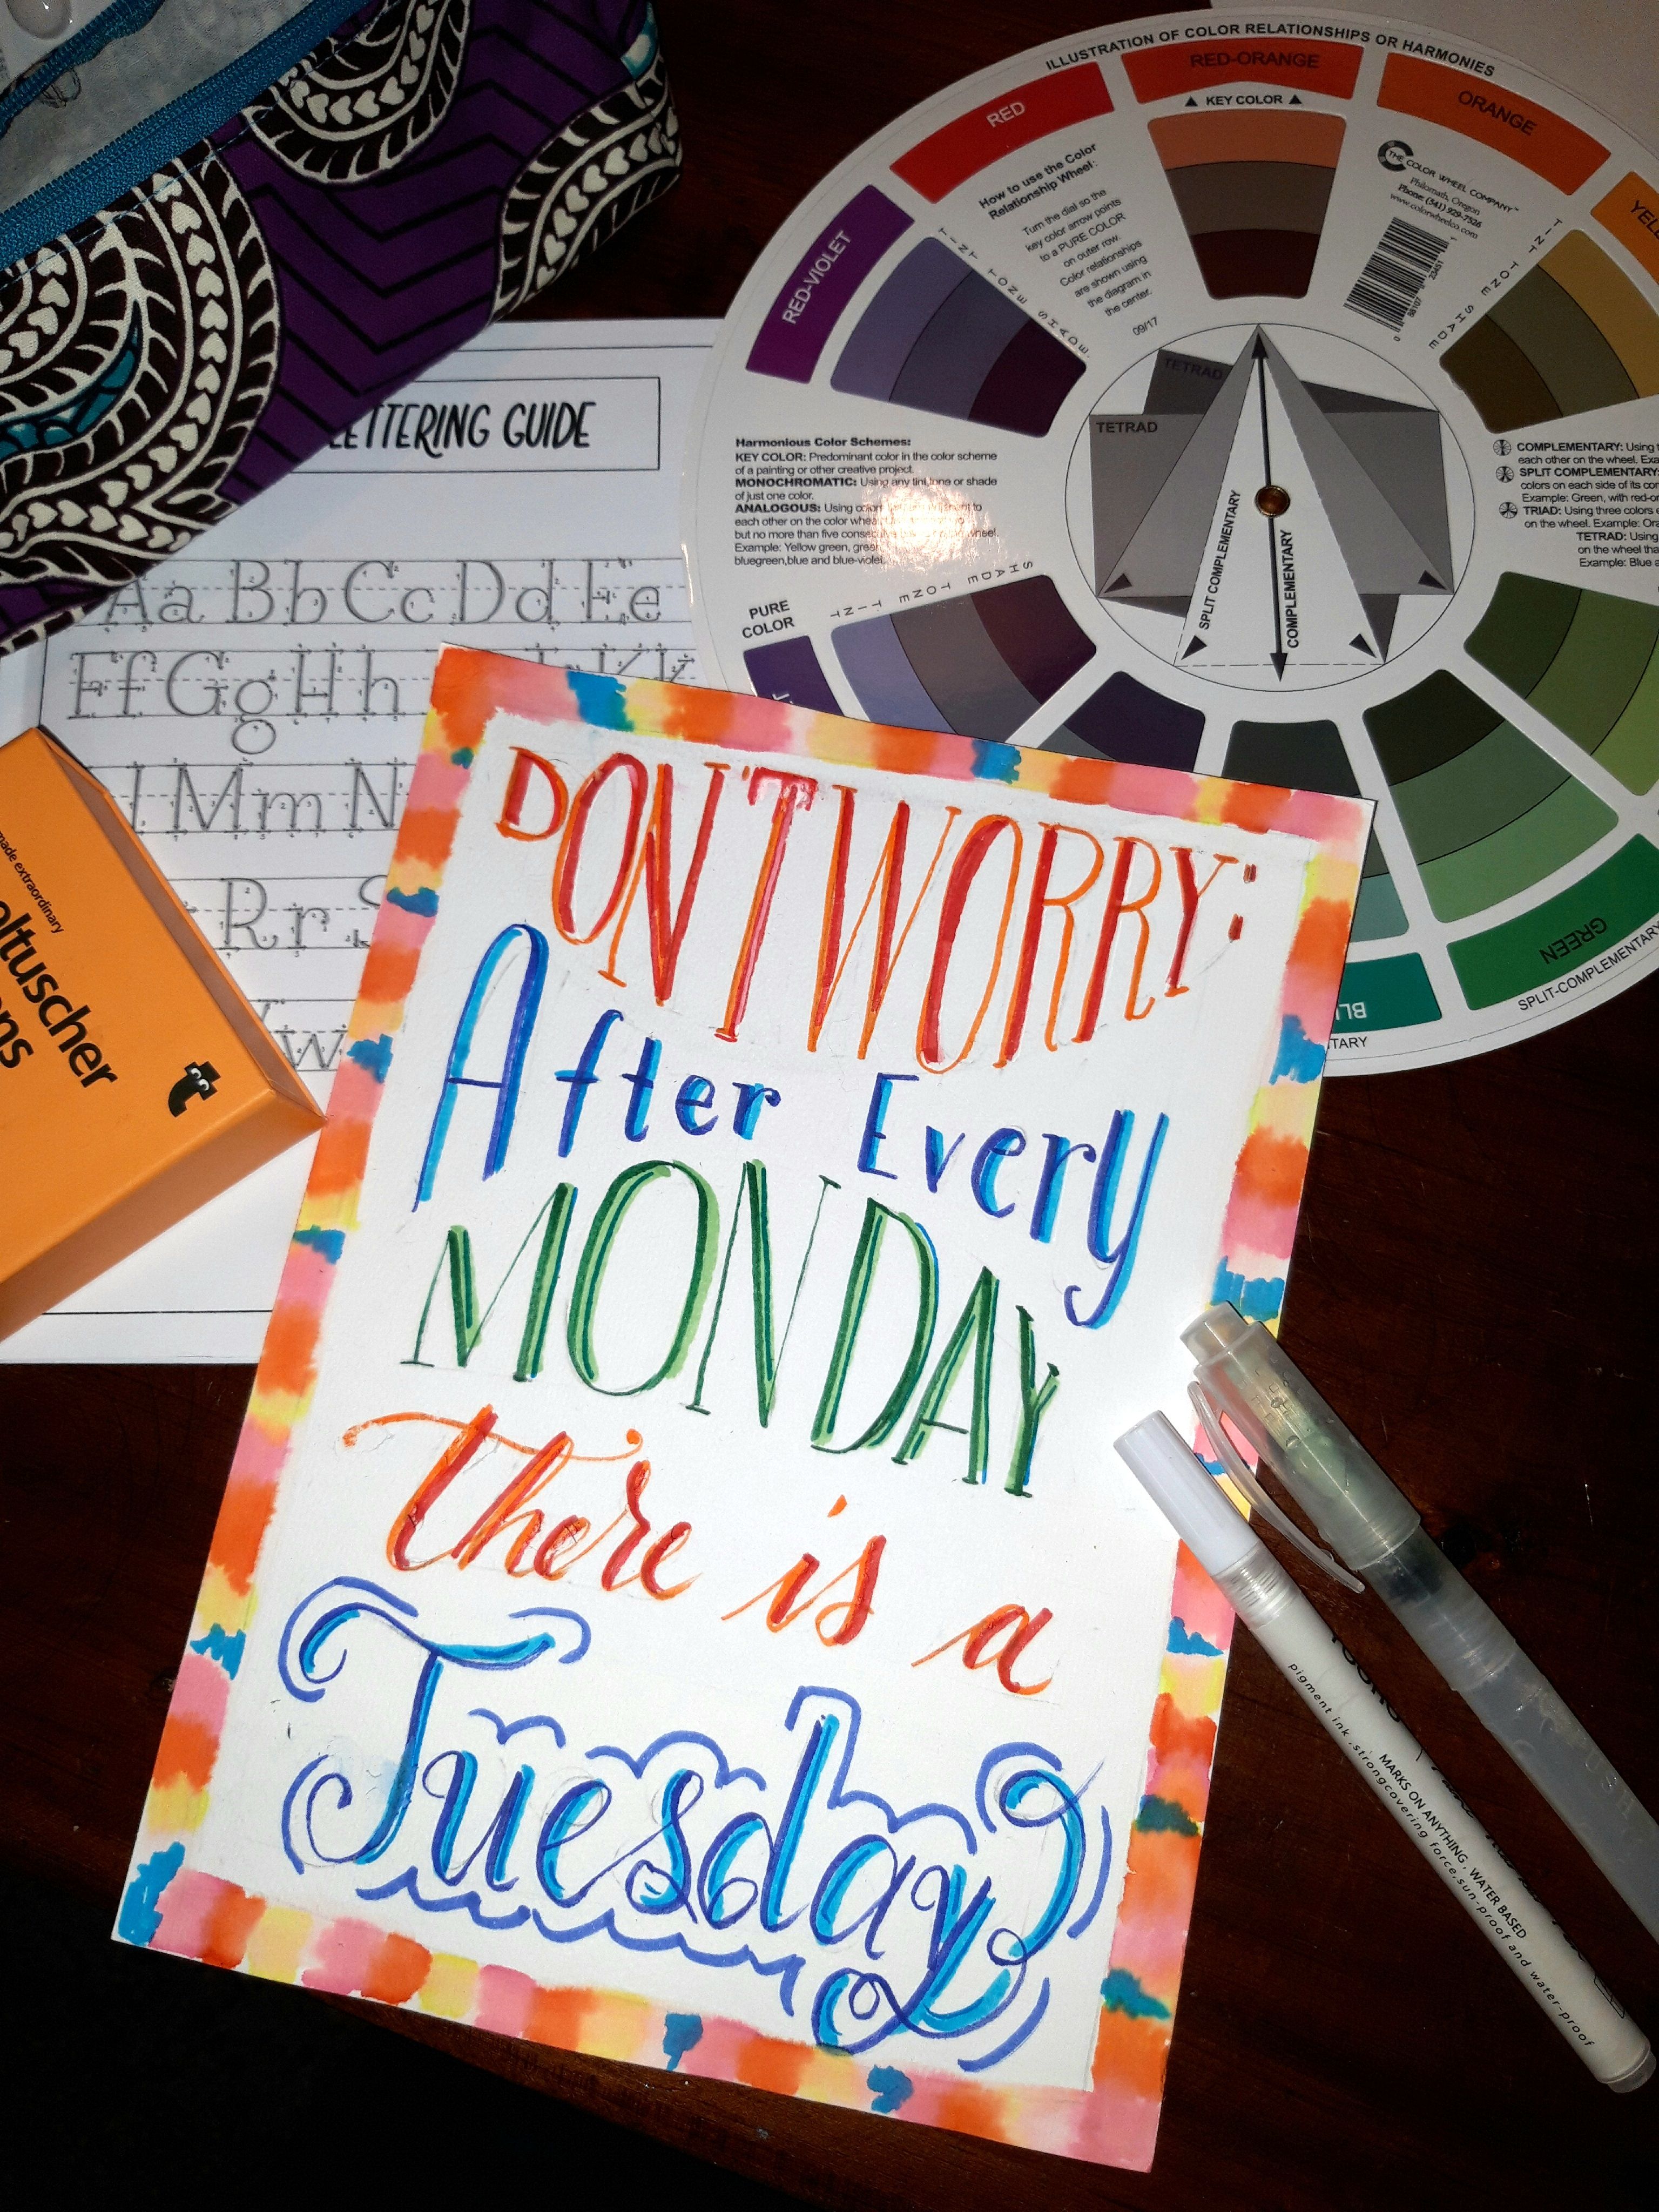 ILLUSTRATION OF COLOR RELATIONSHIPS OR HARMONIES
RED-VIOLET
RED
RED-ORANGE
ORANGE
▲ KEY COLOR ▲
How to use the Color
Relationship Wheel:
Turn the dial so the
key color arrow points
to a PURE COLOR
on outer row.
Color relationships
are shown using
the diagram in
the center.
09/17
THE COLOR WHEEL COMPANY™
Philomath, Oregon
Phone: (541) 929-7526
www.colorwheelco.com
TINT TONE SHADE
TINT TONE SHADE
TETRAD
TETRAD
SPLIT COMPLEMENTARY
COMPLEMENTARY
Harmonious Color Schemes:
KEY COLOR: Predominant color in the color scheme
of a painting or other creative project.
MONOCHROMATIC: Using any tint, tone or shade
of just one color.
ANALOGOUS: Using
to
each other on the color
but no more than five
Example: Yellow green,
bluegreen,blue and blue-violet.
COMPLEMENTARY: Using
each other on the wheel.
SPLIT COMPLEMENTARY:
colors on each side of its
Example: Green, with
TRIAD: Using three colors
on the wheel. Example:
TETRAD: Using
on the wheel
Example: Blue
SHADE TONE TINT
PURE
COLOR
GREEN
SPLIT-COMPLEMENTARY
LETTERING GUIDE
Aa Bb Cc Dd Ee
Ff Gg Hh
Mm N
Rr
made extraordinary
DON'T WORRY:
After Every
MONDAY
there is a
Tuesday
pigment ink, strongcovering force, sun-proof and water-proof
MARKS ON ANYTHING, WATER BASED